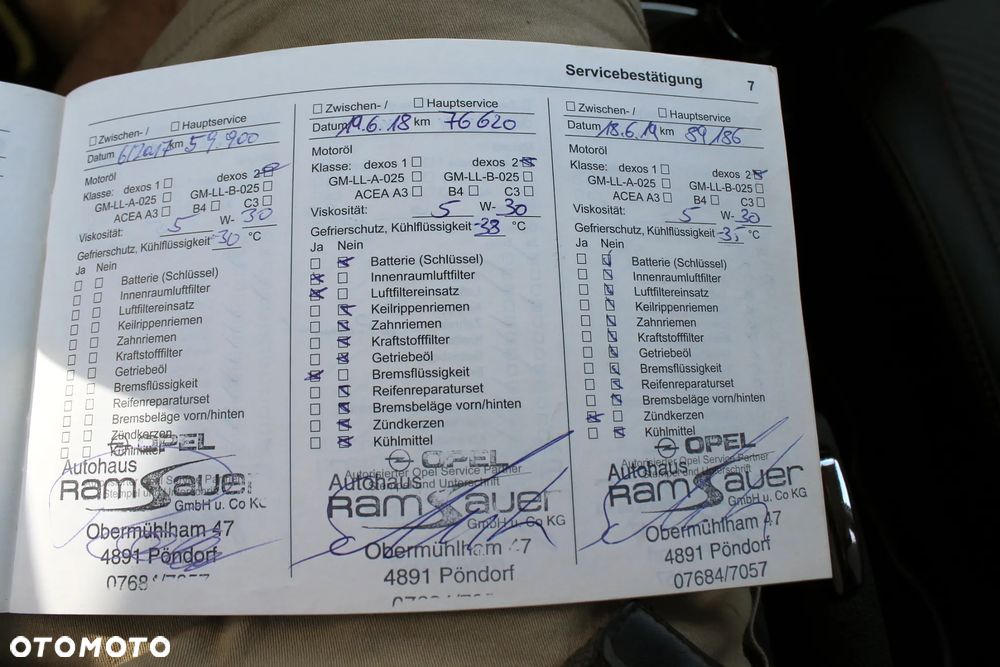 Servicebestätigung 7
Zwischen-/ Hauptservice
Datum 6/2017 km 59.900
Motoröl
Klasse: dexos 1 dexos 2
GM-LL-A-025 GM-LL-B-025
ACEA A3 B4 C3
Viskosität: 5 W- 30
Gefrierschutz, Kühlflüssigkeit -30 °C
Ja Nein
Batterie (Schlüssel)
Innenraumluftfilter
Luftfiltereinsatz
Keilrippenriemen
Zahnriemen
Kraftstofffilter
Getriebeöl
Bremsflüssigkeit
Reifenreparaturset
Bremsbeläge vorn/hinten
Zündkerzen
Kühlmittel
OPEL
Autohaus
Ramsauer
GmbH u. Co KG
Obermühlham 47
4891 Pöndorf
Zwischen-/ Hauptservice
Datum 19.6.18 km 76620
Motoröl
Klasse: dexos 1 dexos 2
GM-LL-A-025 GM-LL-B-025
ACEA A3 B4 C3
Viskosität: 5 W- 30
Gefrierschutz, Kühlflüssigkeit -38 °C
Ja Nein
Batterie (Schlüssel)
Innenraumluftfilter
Luftfiltereinsatz
Keilrippenriemen
Zahnriemen
Kraftstofffilter
Getriebeöl
Bremsflüssigkeit
Reifenreparaturset
Bremsbeläge vorn/hinten
Zündkerzen
Kühlmittel
OPEL
Autorisierter Opel Service Partner
Stempel und Unterschrift
Autohaus
Ramsauer
GmbH u. Co KG
Obermühlham 47
4891 Pöndorf
Zwischen-/ Hauptservice
Datum 18.6.19 km 89186
Motoröl
Klasse: dexos 1 dexos 2
GM-LL-A-025 GM-LL-B-025
ACEA A3 B4 C3
Viskosität: 5 W- 30
Gefrierschutz, Kühlflüssigkeit °C
Ja Nein
Batterie (Schlüssel)
Innenraumluftfilter
Luftfiltereinsatz
Keilrippenriemen
Zahnriemen
Kraftstofffilter
Getriebeöl
Bremsflüssigkeit
Reifenreparaturset
Bremsbeläge vorn/hinten
Zündkerzen
Kühlmittel
OPEL
Autorisierter Opel Service Partner
Stempel und Unterschrift
Autohaus
Ramsauer
GmbH u. Co KG
Obermühlham 47
4891 Pöndorf
07684/7057
OTOMOTO